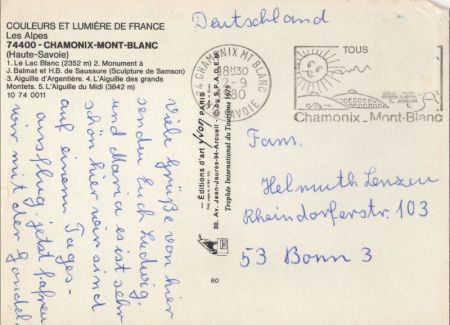 COULEURS ET LUMIÈRE DE FRANCE
Les Alpes
74400 - CHAMONIX-MONT-BLANC
(Haute-Savoie)
1. Le Lac Blanc (2352 m) 2. Monument à
J. Balmat et H.B. de Saussure (Sculpture de Samson)
3. Aiguille d'Argentière. 4. L'Aiguille des grands
Montets. 5. L'Aiguille du Midi (3842 m)
10 74 0011
Deutschland
74 CHAMONIX MT BLANC
18H30
12-9
1980
HTE SAVOIE
TOUS
Chamonix-Mont-Blanc
Viele Grüße von hier
senden Euch Ludwig
und Maria es ist sehr
schön hier wir sind
auf einem Tages-
ausflug. jetzt fahren
wir mit der Gondel.
Editions d'art Yvon PARIS
30, Av. Jean-Jaurès-94-Arcueil - © by S.P.A.D.E.M.
Trophée International du Tourisme 1979
80
Fam.
Helmuth Lenzen
Rheindorferstr 103
53 Bonn 3